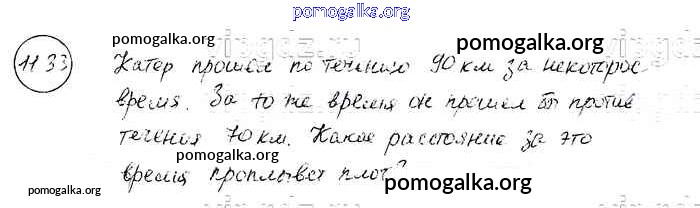 pomogalka.org
1133
pomogalka.org
pomogalka.org
Катер прошел по течению 90 км за некоторое
время. За то же время он прошел бы против
pomogalka.org
течения 70 км. Какое расстояние за это
pomogalka.org
время проплывет плот?
pomogalka.org
pomogalka.org